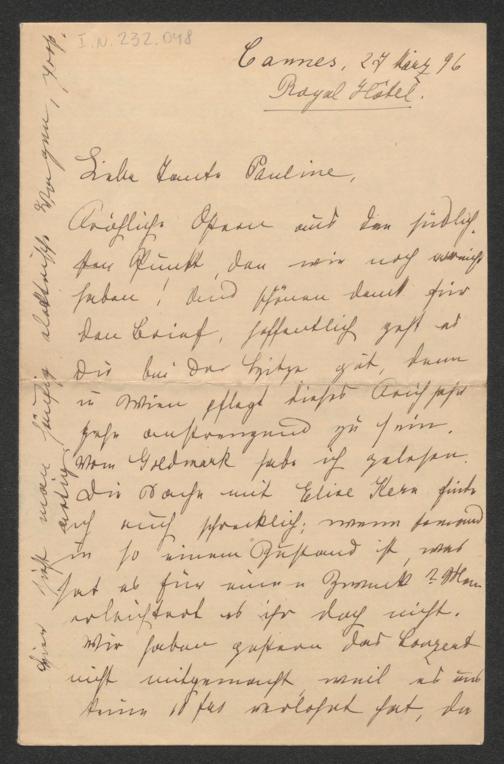 I.N. 232.048
Cannes, 27 März 96
Royal Hôtel.
Liebe Tante Pauline,
Fröhliche Ostern aus dem südlich-
sten Punkt, den wir noch erreicht
haben! Und schönen Dank für
den Brief, hoffentlich geht es
Dir bei der Hitze gut, denn
in Wien pflegt dieses Frühjahr
sehr anstrengend zu sein.
Von Goldmark habe ich gelesen.
Die Sache mit Elise Kern finde
ich auch schrecklich; wenn jemand
in so einem Zustand ist, was
hat es für einen Zweck? Man
erleichtert es ihr doch nicht.
Wir haben gestern das Konzert
nicht mitgemacht, weil es uns
keine 10 frs verlohnt hat, da
Hier sieht man häufig elektrische Wagen,